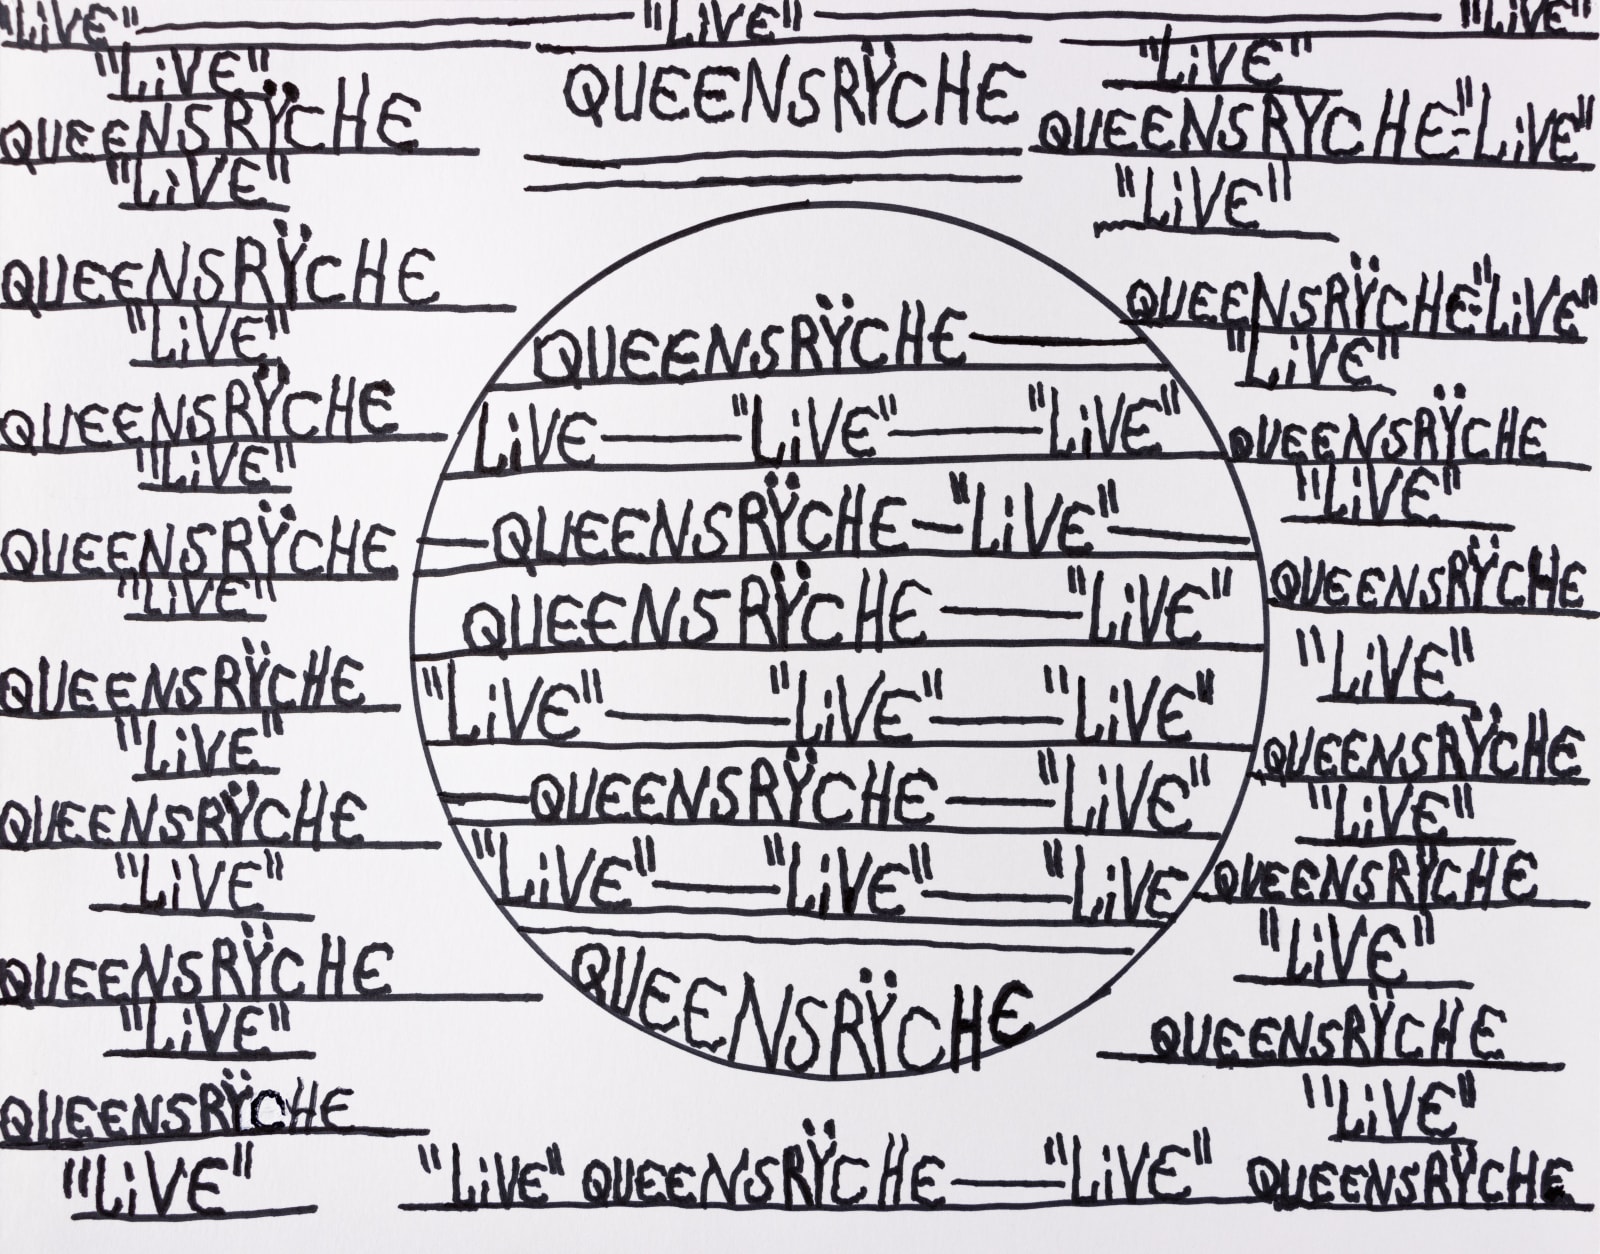 "LiVE" "LiVE" "LiVE"
"LiVE"
QUEENSRŸCHE
"LiVE"
QUEENSRŸCHE
"LiVE"
QUEENSRŸCHE
"LiVE"
QUEENSRŸCHE
"LiVE"
QUEENSRŸCHE
"LiVE"
QUEENSRŸCHE
"LiVE"
QUEENSRŸCHE
"LiVE"
QUEENSRŸCHE
"LiVE"
QUEENSRŸCHE
QUEENSRŸCHE
LiVE — "LiVE" — "LiVE"
QUEENSRŸCHE — "LiVE"
QUEENSRŸCHE — "LiVE"
"LiVE" — "LiVE" — "LiVE"
QUEENSRŸCHE — "LiVE"
"LiVE" — "LiVE" — "LiVE
QUEENSRŸCHE
"LiVE"
QUEENSRŸCHE-"LiVE"
"LiVE"
QUEENSRŸCHE-"LiVE"
"LiVE"
QUEENSRŸCHE
"LiVE"
QUEENSRŸCHE
"LiVE"
QUEENSRŸCHE
"LiVE"
QUEENSRŸCHE
"LiVE"
QUEENSRŸCHE
"LiVE"
"LiVE" QUEENSRŸCHE — "LiVE" QUEENSRŸCHE